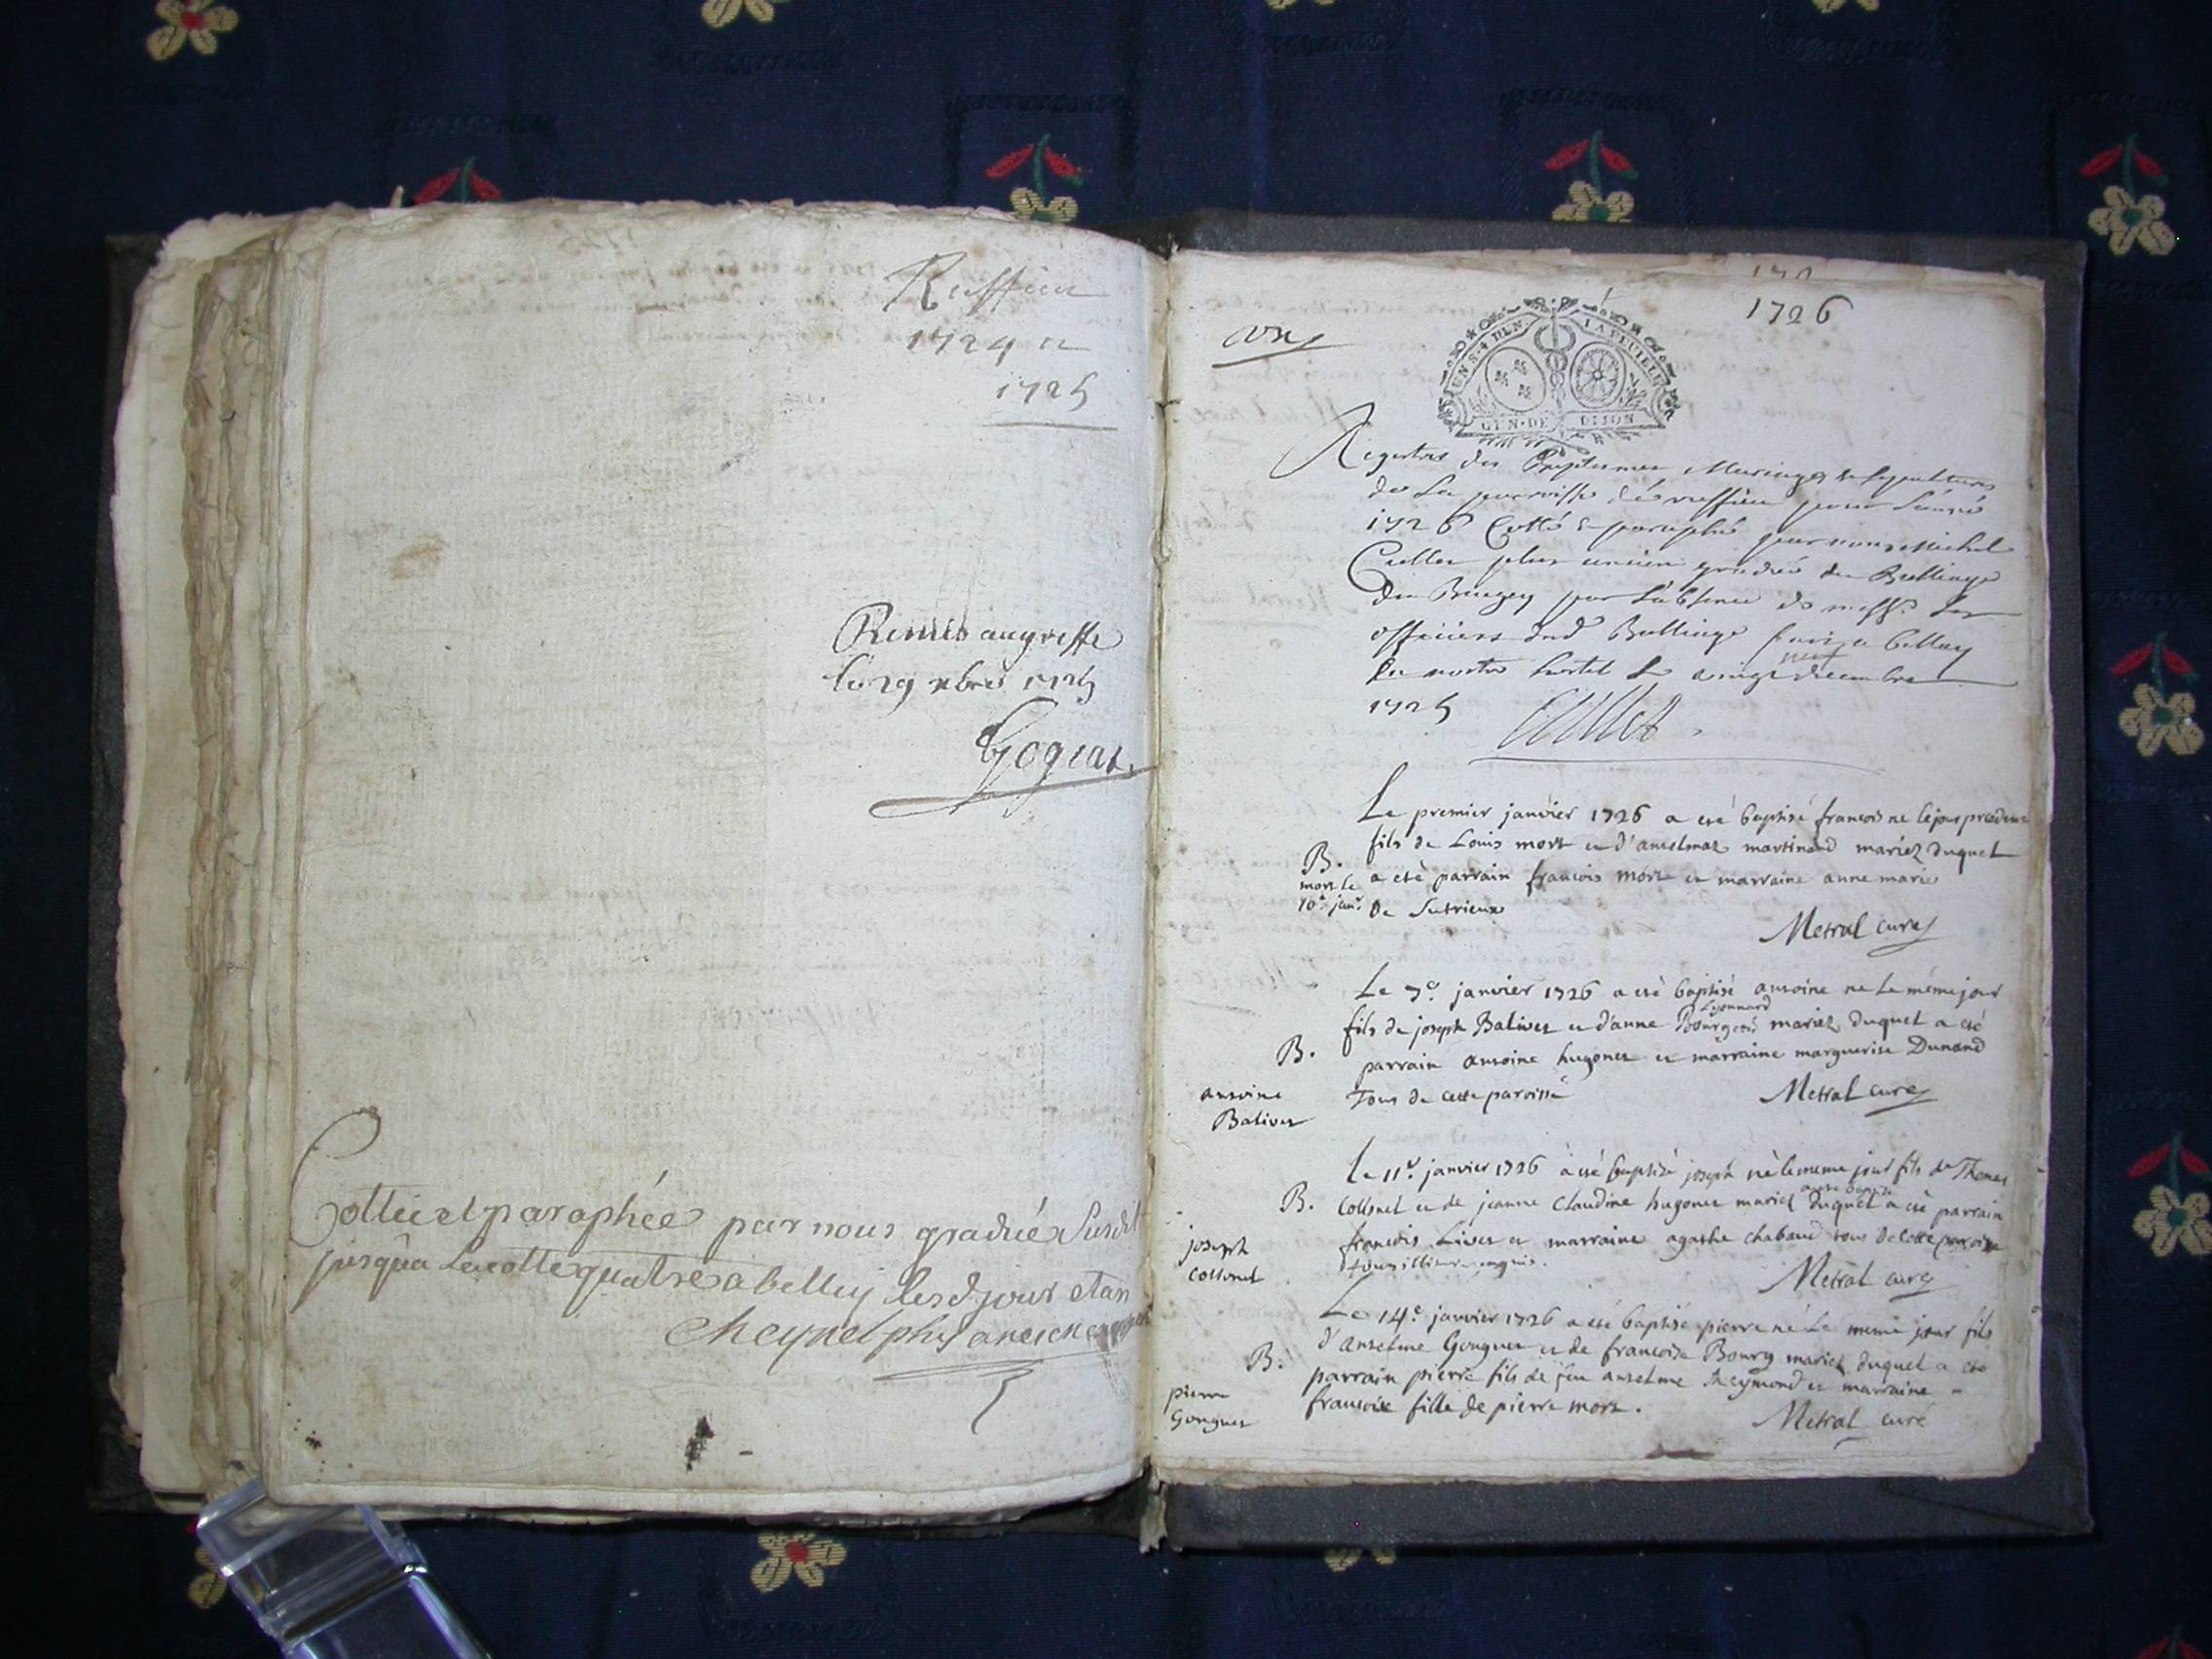 Ruffieu
1724 et
1725
Remis au greffe
le 29 xbre 1725
Gogiat
Cottée et paraphée par nous gradué Susdit
jusqu'a La cotte quatre a belley lesd jour et an
plus ancien
1726
UN S. 4 DEN. LA FEUILLE
GEN. DE DIJON
Registre des Baptesmes Mariages & sepultures
de La parroisse de ruffieu pour L'année
1726 Cotté & paraphé par nous Michel
Cullet plus ancien gradué du Balliage
du Bugey par L'absence de messrs Les
officiers dud Balliage fait a belley
en nostre hostel Le vingt neuf decembre
1725 Cullet
Le premier janvier 1726 a eté baptisé francois ne le jour precedent
fils de Louis mort et d'anselmaz martinand mariez duquel
B. a eté parrain francois mort et marraine anne marie
mort le
10e janr. De Sutrieux
Metral curé
Le 7e. janvier 1726 a eté baptisé antoine ne Le même jour
Lyonnard
fils de joseph Balivet et d'anne Bourgeois mariez duquel a eté
B. parrain antoine hugonet et marraine marguerite Dunand
antoine Tous de cette paroisse Metral curé
Balivet
Le 11e. janvier 1726 a eté baptisé joseph né le meme jour fils de Thomas
B. Collonel et de jeanne Claudine hugonet mariez duquel a eté parrain
joseph francois Livet et marraine agathe chabaud tous de cette paroisse
Collonel
Metral curé
Le 14e. janvier 1726 a eté baptisé pierre né Le meme jour fils
d'anselme Gonguet et de francoise Bourg mariez duquel a eté
B. parrain pierre fils de feu anselme Reymond et marraine -
pierre francoise fille de pierre mort.
Gonguet Metral curé